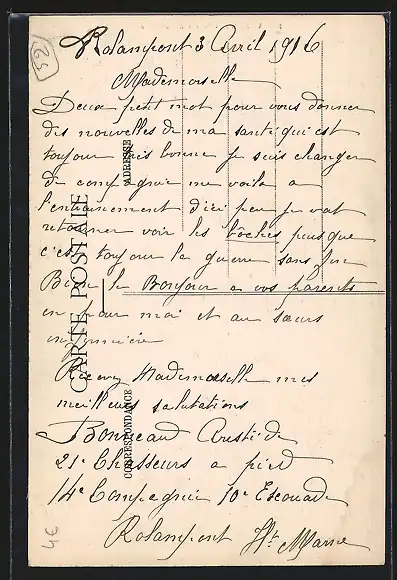 52
Rolampont 3 Avril 1916
Mademoiselle
Deux petit mot pour vous donner
des nouvelles de ma santé qui est
toujour tres bonne je suis changer
de compagnie me voila a
l'entrainement d'ici peu je vat
retourner voir les bôches puisque
c'est toujour la guerre sans fin
Bien le Bonjour a vos parents
en pour moi et au sœurs
infirmière
Recevez Mademoiselle mes
meilleurs salutations
Bonneaud Aristide
21e Chasseurs a pied
14e Compagnie 10e Escouade
Rolampont Hte Marne
CARTE POSTALE
ADRESSE
CORRESPONDANCE
4€